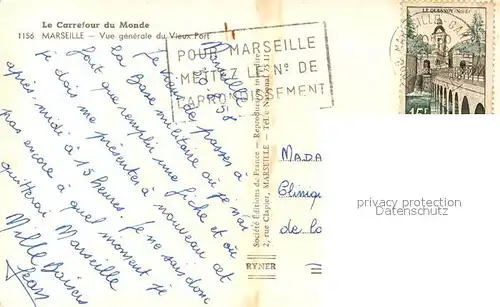 Le Carrefour du Monde
1156 MARSEILLE — Vue générale du Vieux Port
POUR MARSEILLE
METTEZ LE Nº DE
L'ARRONDISSEMENT
LE QUESNOY
15F
Marseille
Je viens de passer à
la Base militaire où je n'ai
fait que remplir une fiche et où
je dois me présenter à nouveau cet
après-midi à 15 heures. Je ne sais donc
pas encore à quel moment je
quitterai Marseille
Mille Baisers
Jean
Société Editions de France — Reproduction interdite
2, rue Clapier, MARSEILLE - Tél.
MADA
Clinique
de la
RYNER
privacy protection
Datenschutz